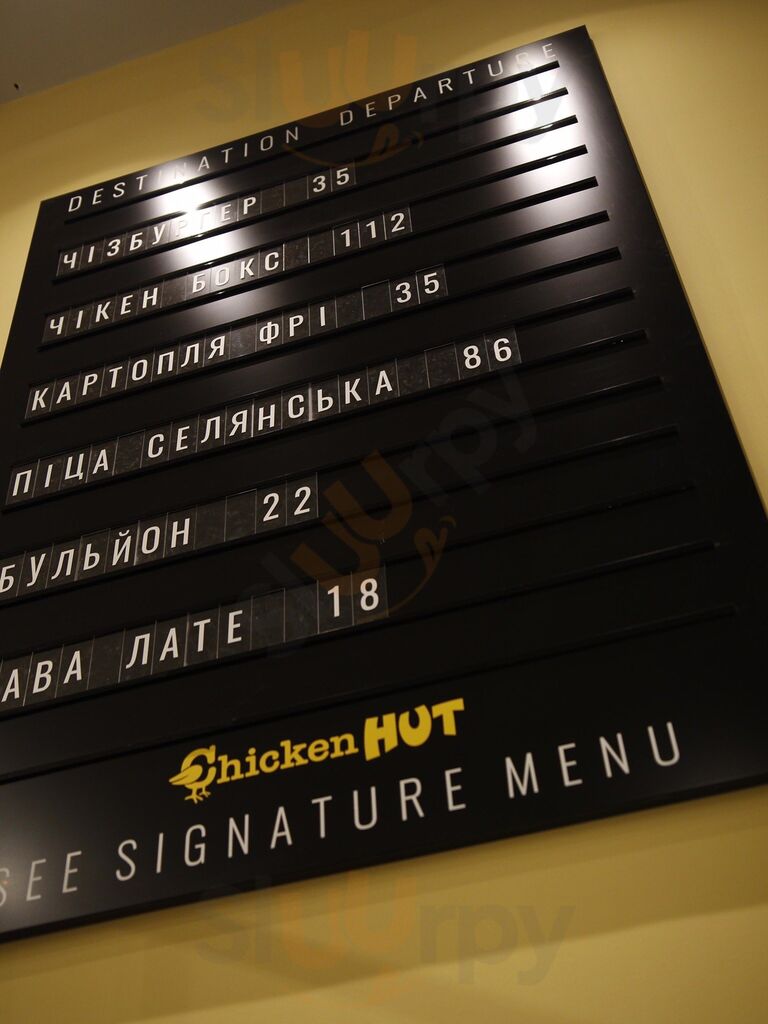 DESTINATION DEPARTURE
ЧІЗБУРГЕР 35
ЧІКЕН БОКС 112
КАРТОПЛЯ ФРІ 35
ПІЦА СЕЛЯНСЬКА 86
БУЛЬЙОН 22
АВА ЛАТЕ 18
Chicken HUT
SEE SIGNATURE MENU
sluurpy
sluurpy
sluurpy